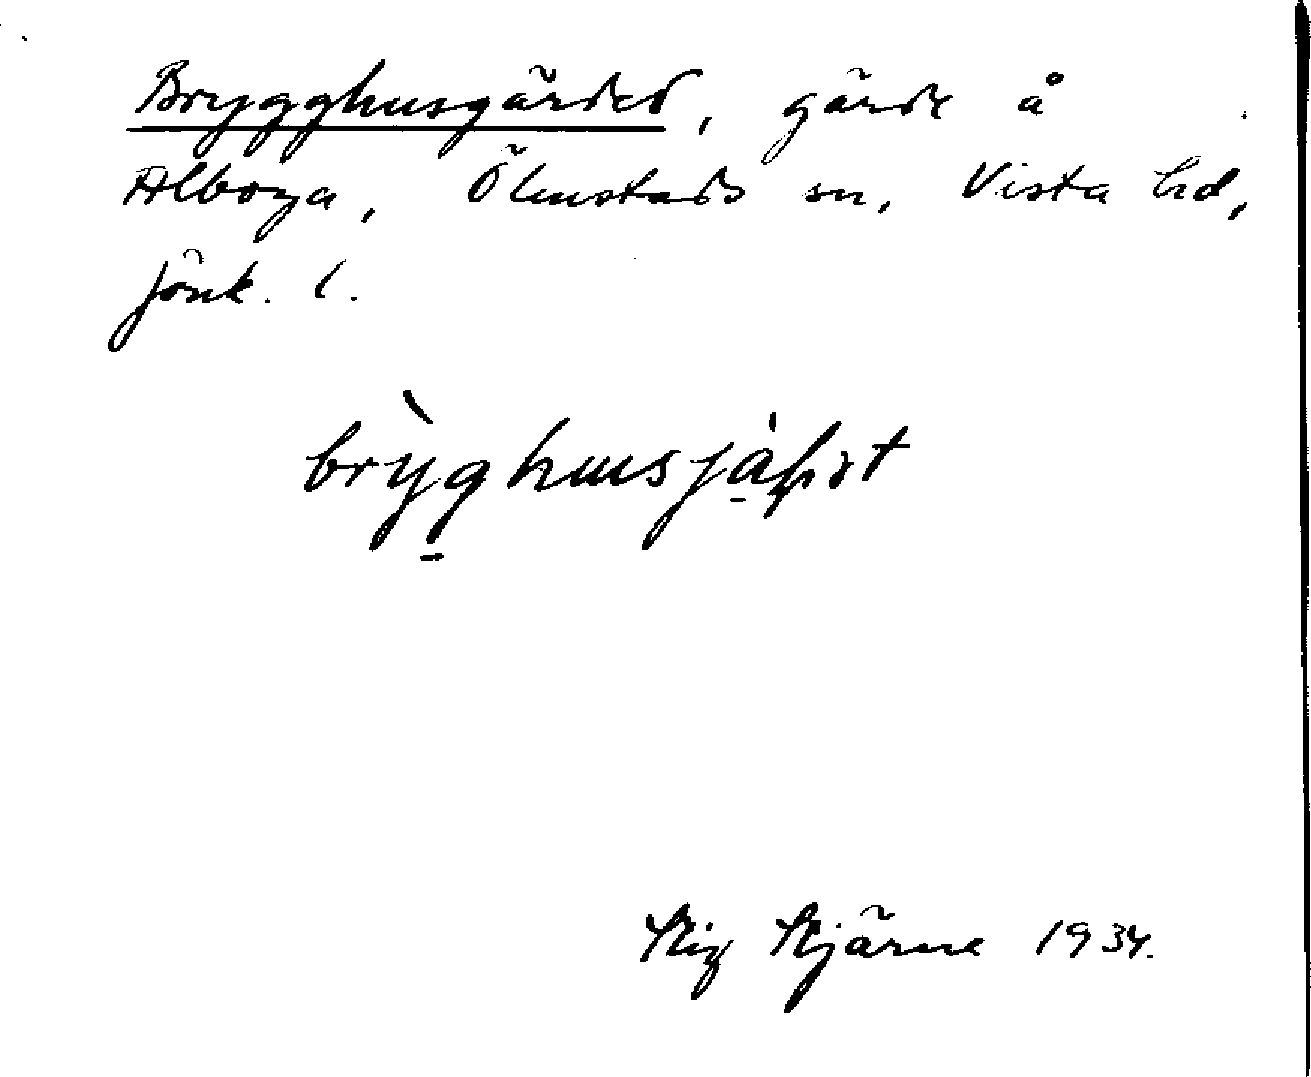 Brygghusgärdet, gärde å
Alboga, Ölmstads sn, Vista hd,
Jönk. l.
brỳghusjàɧət
Stig Stjärne 1934.